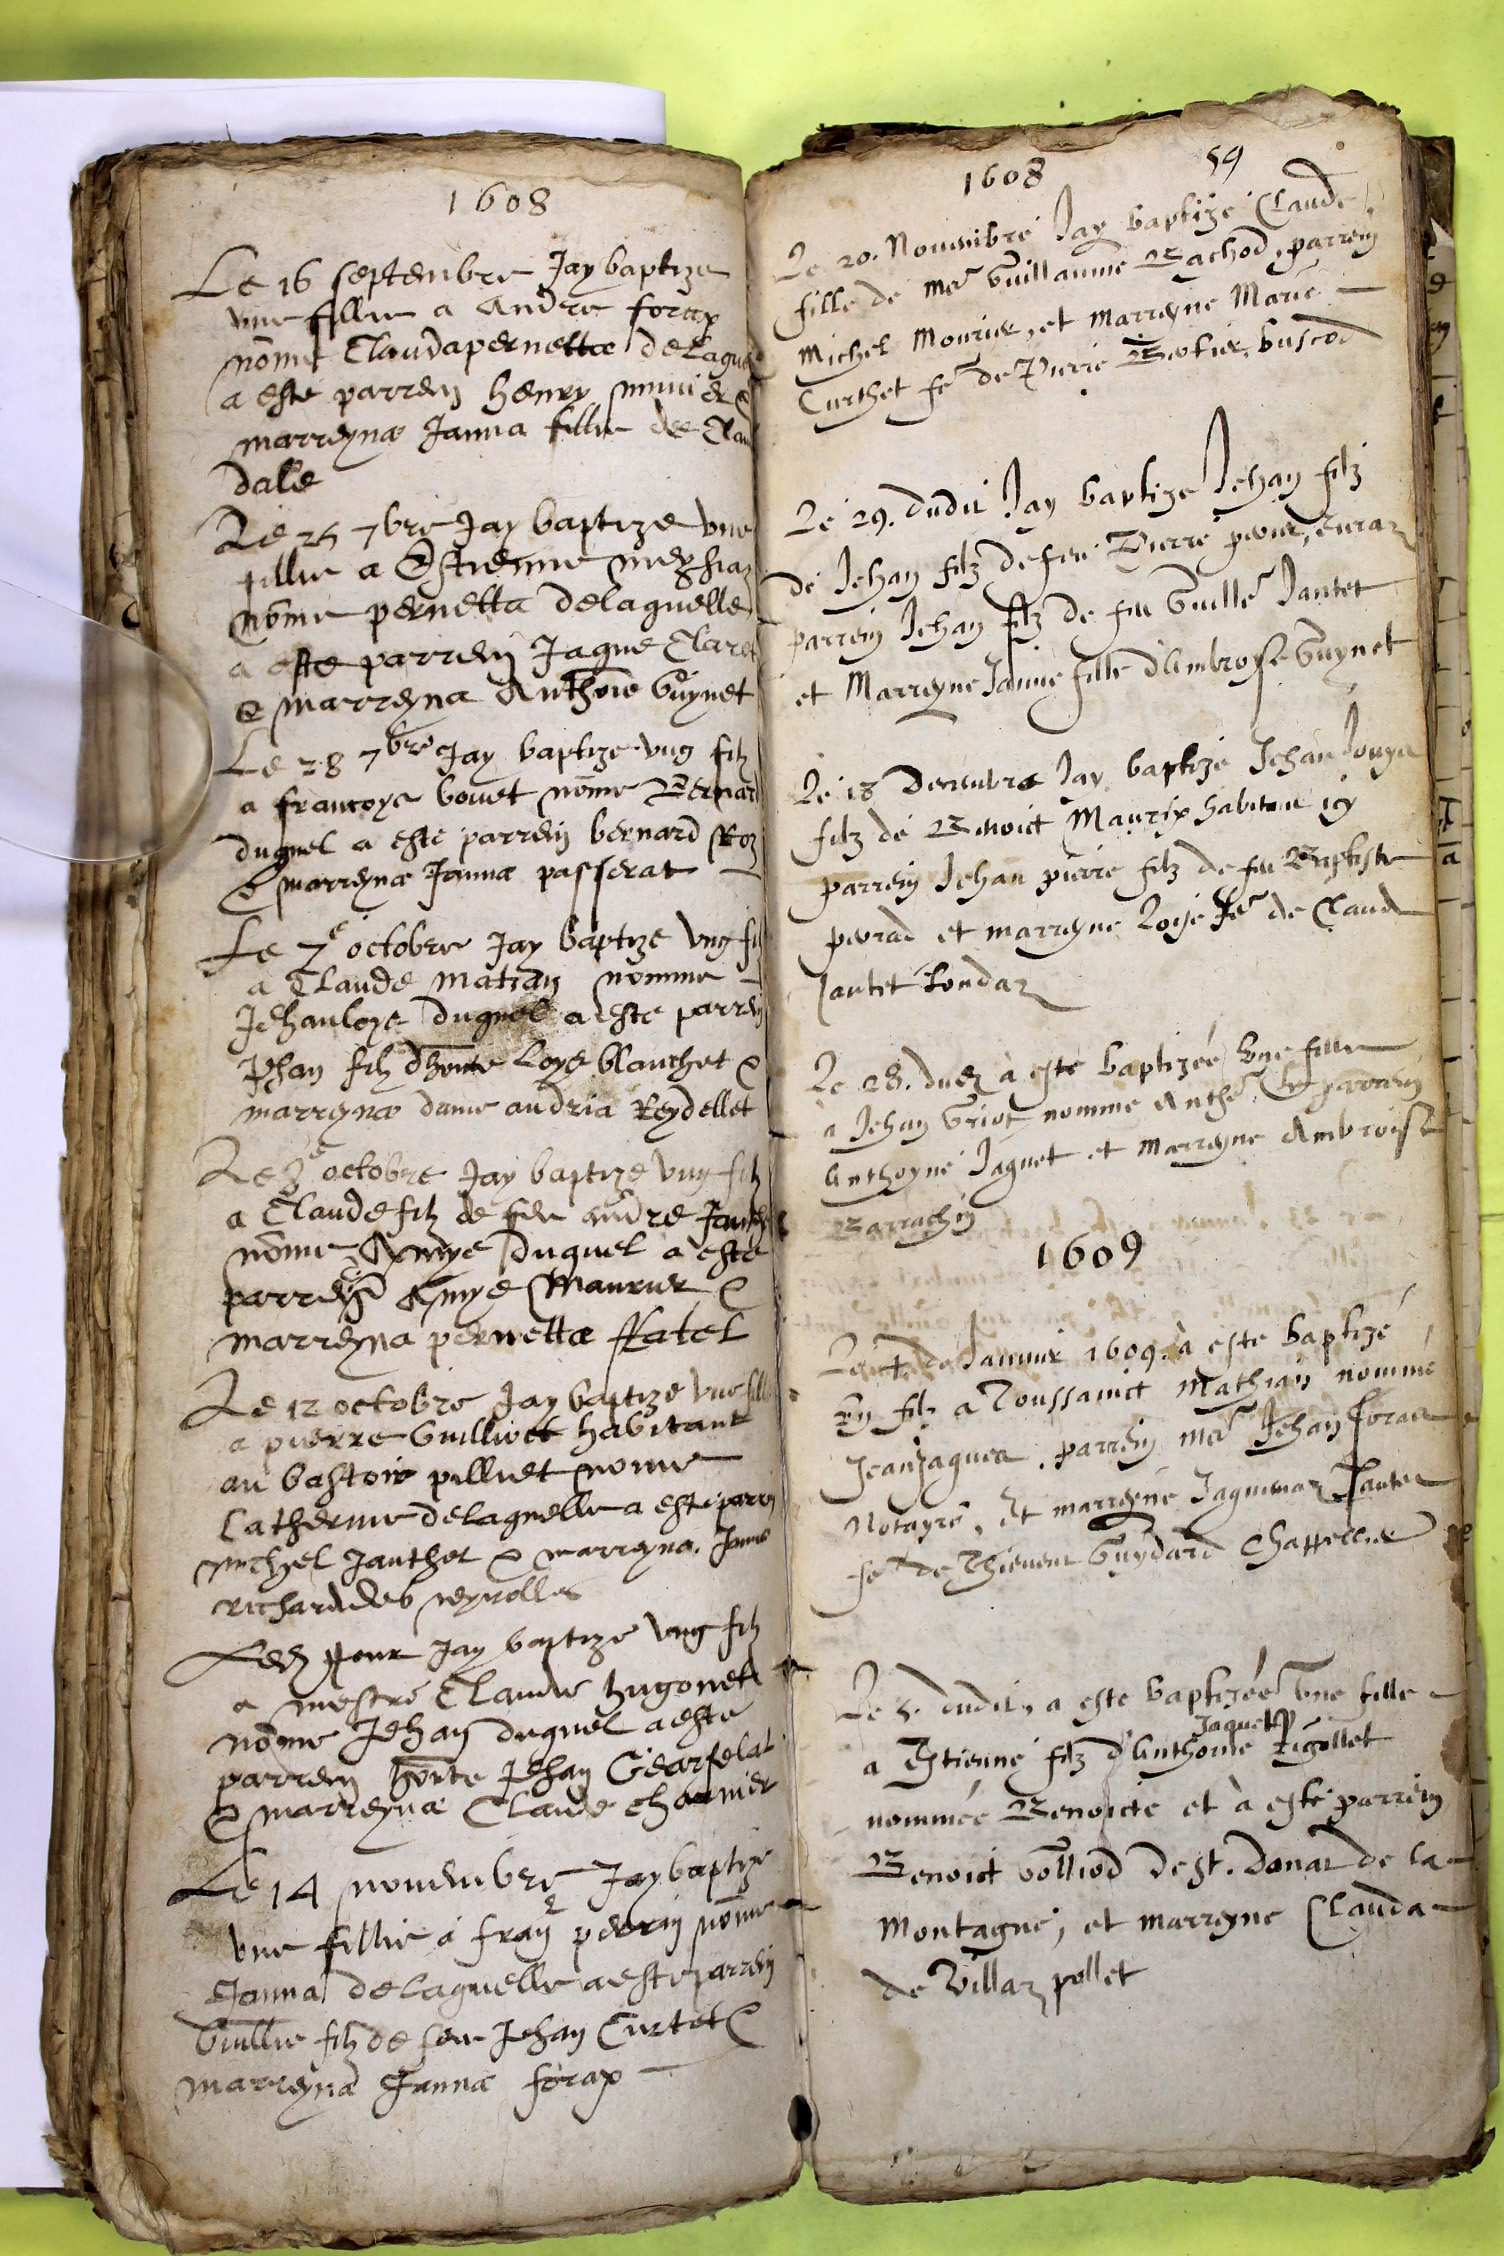 1608
Le 16 septembre Jay baptize
une fillie a Andre forax
nōme Claudapernetta delaque
a este parrein henry munier &
marreyna Janna fillie de Clau
dale
Le 25 7bre Jay baptize une
fillie a Estienne
nōme pernetta delaquelle
a este parrein Jaque Claret
& marreyna Anthoīe Guynet
Le 28 7bre Jay baptize ung filz
a francoys bouet nōme Bernard
duquel a este parrein bernard Roz
& marreyna Janna passerat
Le 7e octobre Jay baptize ung filz
a Claude matian nomme
Jehanloys duquel a este parrein
Jehan filz dhōnte Loys blanchet &
marreyna dame andria Reydellet
Le octobre Jay baptize ung filz
a Claude filz de feu andre
nōme Amye duquel a este
parrein Amye Maurier &
marreyna pernetta ffatel
Le 12 octobre Jay baptize une fillie
a pierre Guilliot habitant
au bastoir pilliet nōme
Catherine delaquelle a este parrein
michel Janthet & marreyna Janne
richard des neyrolles
Ledz Jour Jay baptize ung filz
a mestre Claude hugonet
nōme Jehan duquel a este
parrein hōnte Jehan
& marreyna Claude charnier
Le 14 novembre Jay baptize
une fillie a fran perrin nōme
Janna delaquelle a este parrein
Guillie filz de feu Jehan Curtet &
marreyna Janna forax
1608 59
Le 20. Novembre Jay baptize Claude,
fille de me Guillaume Bachod, parrein
Michel Mourier, et marreyne Marie
Curthet fe de Pierre
Le 29. dudit Jay baptize Jehan filz
de Jehan filz de feu Pierre
parrein Jehan filz de feu Guille Jantet
et Marreyne Janne fille d'Ambroise Guynet
Le 18 Decembre Jay baptize Jehan Louys
filz de Benoict Maurix habitant icy
parrein Jehan pierre filz de feu Baptiste
perrad et marreyne Loyse fe de Claude
Jantet
Le 28. dudz a este baptizée Une fille
a Jehan Griot nomme Anthe, parrein
Anthoyne Jaquet et Marreyne Ambroise
Barrachin
1609
de Janvier 1609. a este baptizé
Un filz a Toussainct Mathian nommé
Jeanjaques, parrein me Jehan forax
Notayre, et marreyne Jantet
fe de Thievent Guydard Chappellier
Le 5. dudit, a este baptizée Une fille
Jaquet
a Estienne filz d'Anthoine Rigollet
nommée Benoicte et à este parrein
Benoict volliod de st. Donat de la
Montagne, et marreyne Clauda
de Villaz pollet